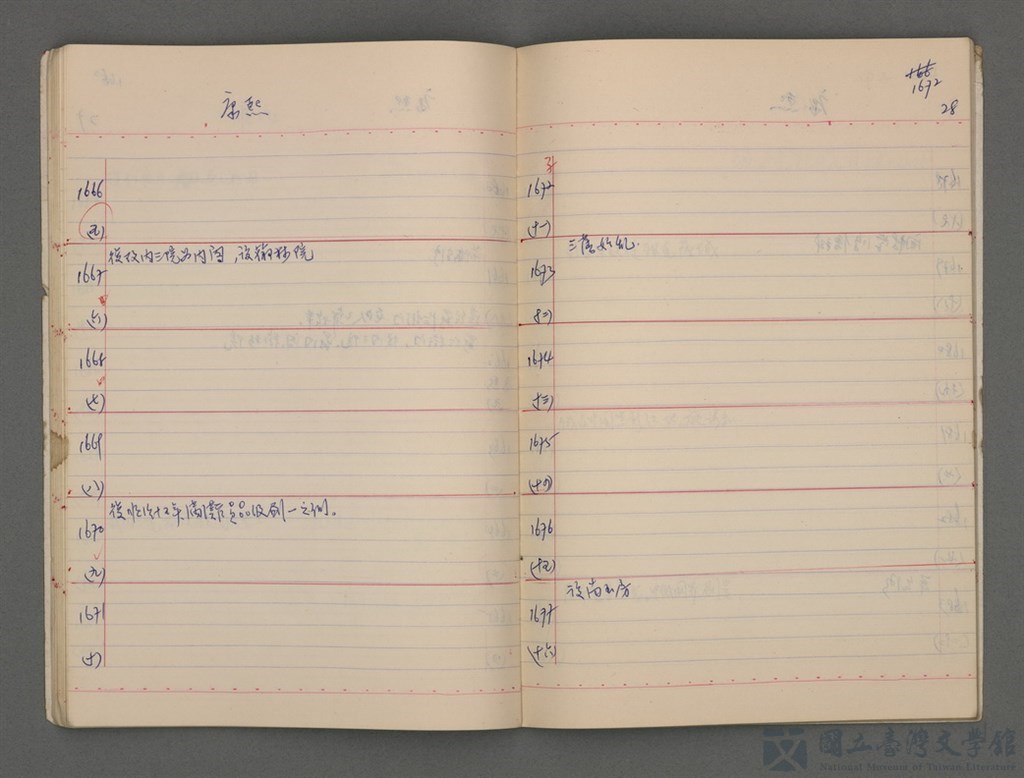 康熙
1666
(五)
復改內三院为内閣,設翰林院
1667
(六)
1668
(七)
1669
(八)
復順治十五年滿漢官員品級劃一之例。
1670
(九)
1671
(十)
1672
28
1672
(十一)
三藩始乱.
1673
(十二)
1674
(十三)
1675
(十四)
1676
(十五)
設南书房
1677
(十六)
國立臺灣文學館
National Museum of Taiwan Literature